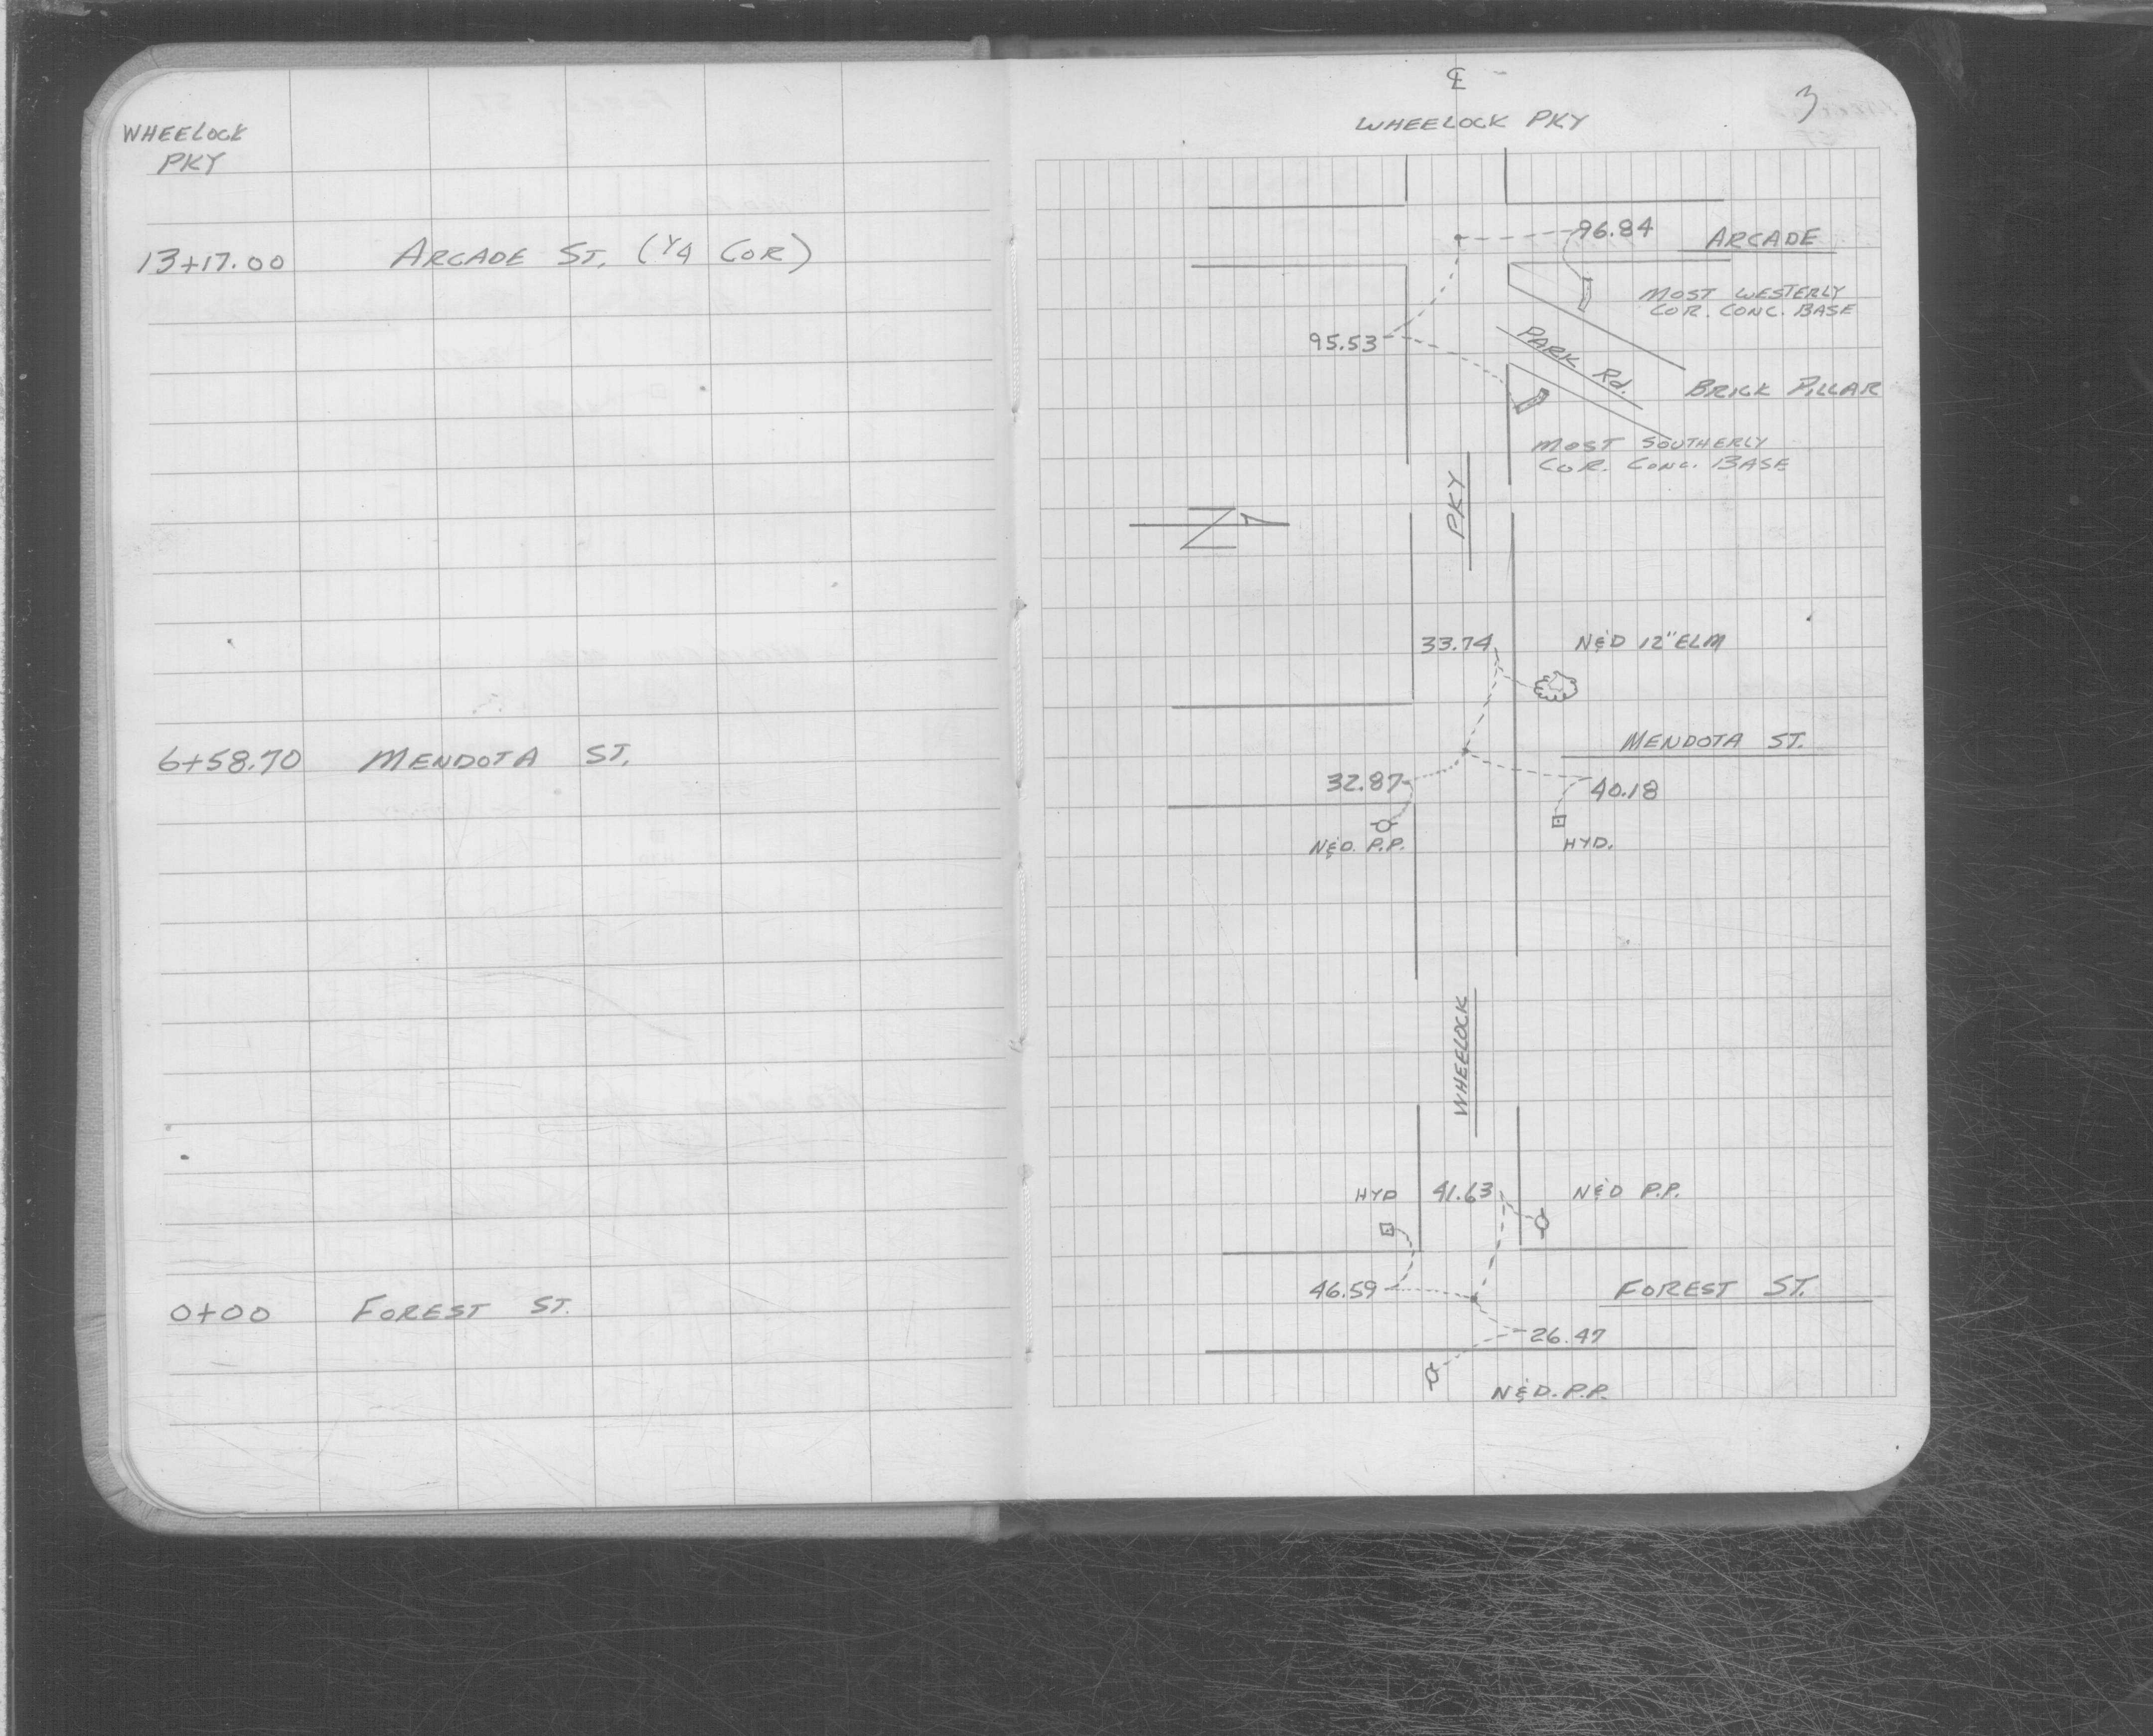 WHEELOCK
PKY
13+17.00 ARCADE ST. (1/4 COR)
6+58.70 MENDOTA ST.
0+00 FOREST ST.
℄
WHEELOCK PKY
3
96.84
ARCADE
MOST WESTERLY
COR. CONC. BASE
95.53
PARK Rd.
BRICK PILLAR
MOST SOUTHERLY
COR. CONC. BASE
PKY
N
33.74
N&D 12" ELM
MENDOTA ST.
32.87
40.18
N&D. P.P.
HYD.
WHEELOCK
HYD
41.63
N&D P.P.
46.59
FOREST ST.
26.47
N&D. P.P.